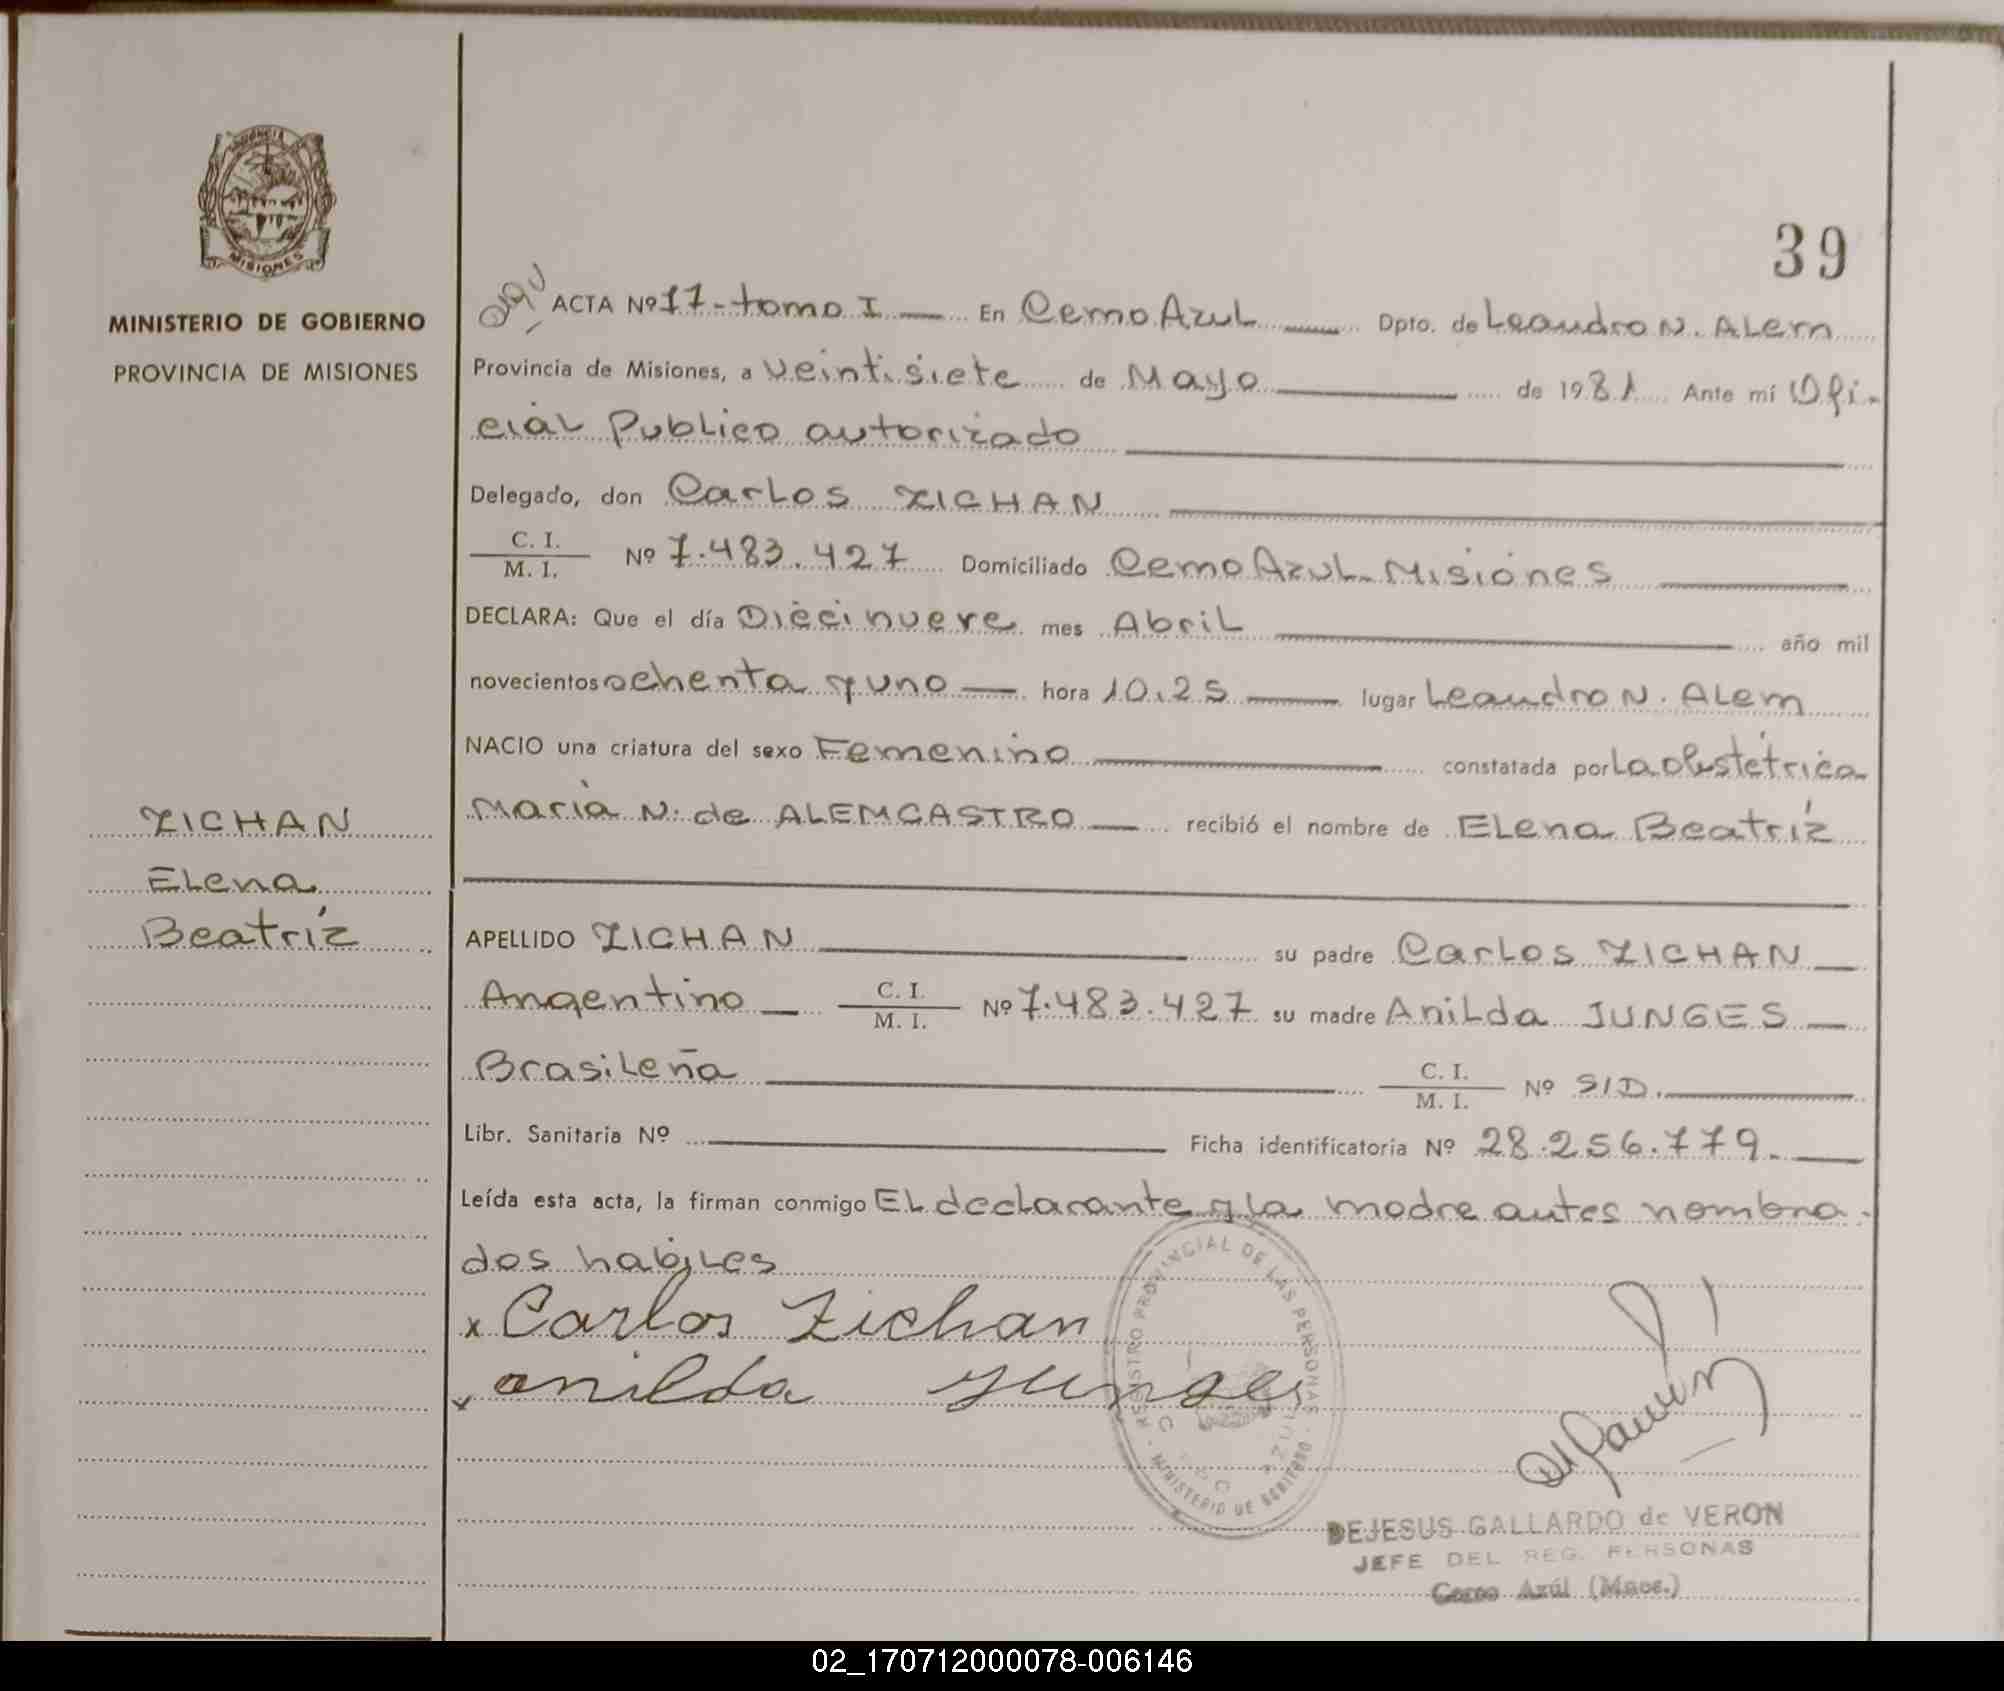 PROVINCIA
MISIONES
MINISTERIO DE GOBIERNO
PROVINCIA DE MISIONES
ZICHAN
Elena
Beatríz
39
ACTA Nº 17 - tomo I — En Cerro Azul — Dpto. de Leandro N. Alem
Provincia de Misiones, a veintisiete de Mayo — de 1981 Ante mí Ofi-
cial Publico autorizado
Delegado, don Carlos ZICHAN
C. I.
M. I. Nº 7.483.427 Domiciliado Cerro Azul - Misiones
DECLARA: Que el día Diecinueve mes Abril — año mil
novecientos ochenta y uno — hora 10,25 — lugar Leandro N. Alem
NACIO una criatura del sexo Femenino — constatada por La obstétrica
María N. de ALEMCASTRO — recibió el nombre de Elena Beatríz
APELLIDO ZICHAN — su padre Carlos ZICHAN —
Argentino — C. I.
M. I. Nº 7.483.427 su madre Anilda JUNGES —
Brasileña — C. I.
M. I. Nº S/D.
Libr. Sanitaria Nº — Ficha identificatoria Nº 28.256.779. —
Leída esta acta, la firman conmigo El declarante y la madre antes nombra-
dos habiles
x Carlos Zichan
x anilda Junges
REGISTRO PROVINCIAL DE LAS PERSONAS
MINISTERIO DE GOBIERNO
DEJESUS GALLARDO de VERON
JEFE DEL REG. PERSONAS
Cerro Azúl (Mnes.)
02_170712000078-006146